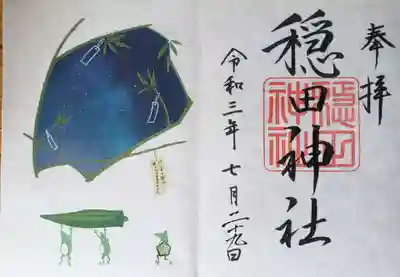 奉拝
穏田神社
穏田神社
令和三年 七月二十九日